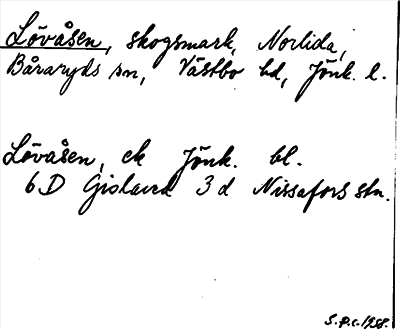 Lövåsen, skogsmark, Norlida,
Båraryds sn, Västbo hd, Jönk. l.
Lövåsen, ek Jönk. bl.
6 D Gislaved 3 d Nissafors stn.
S.P.C. 1958.